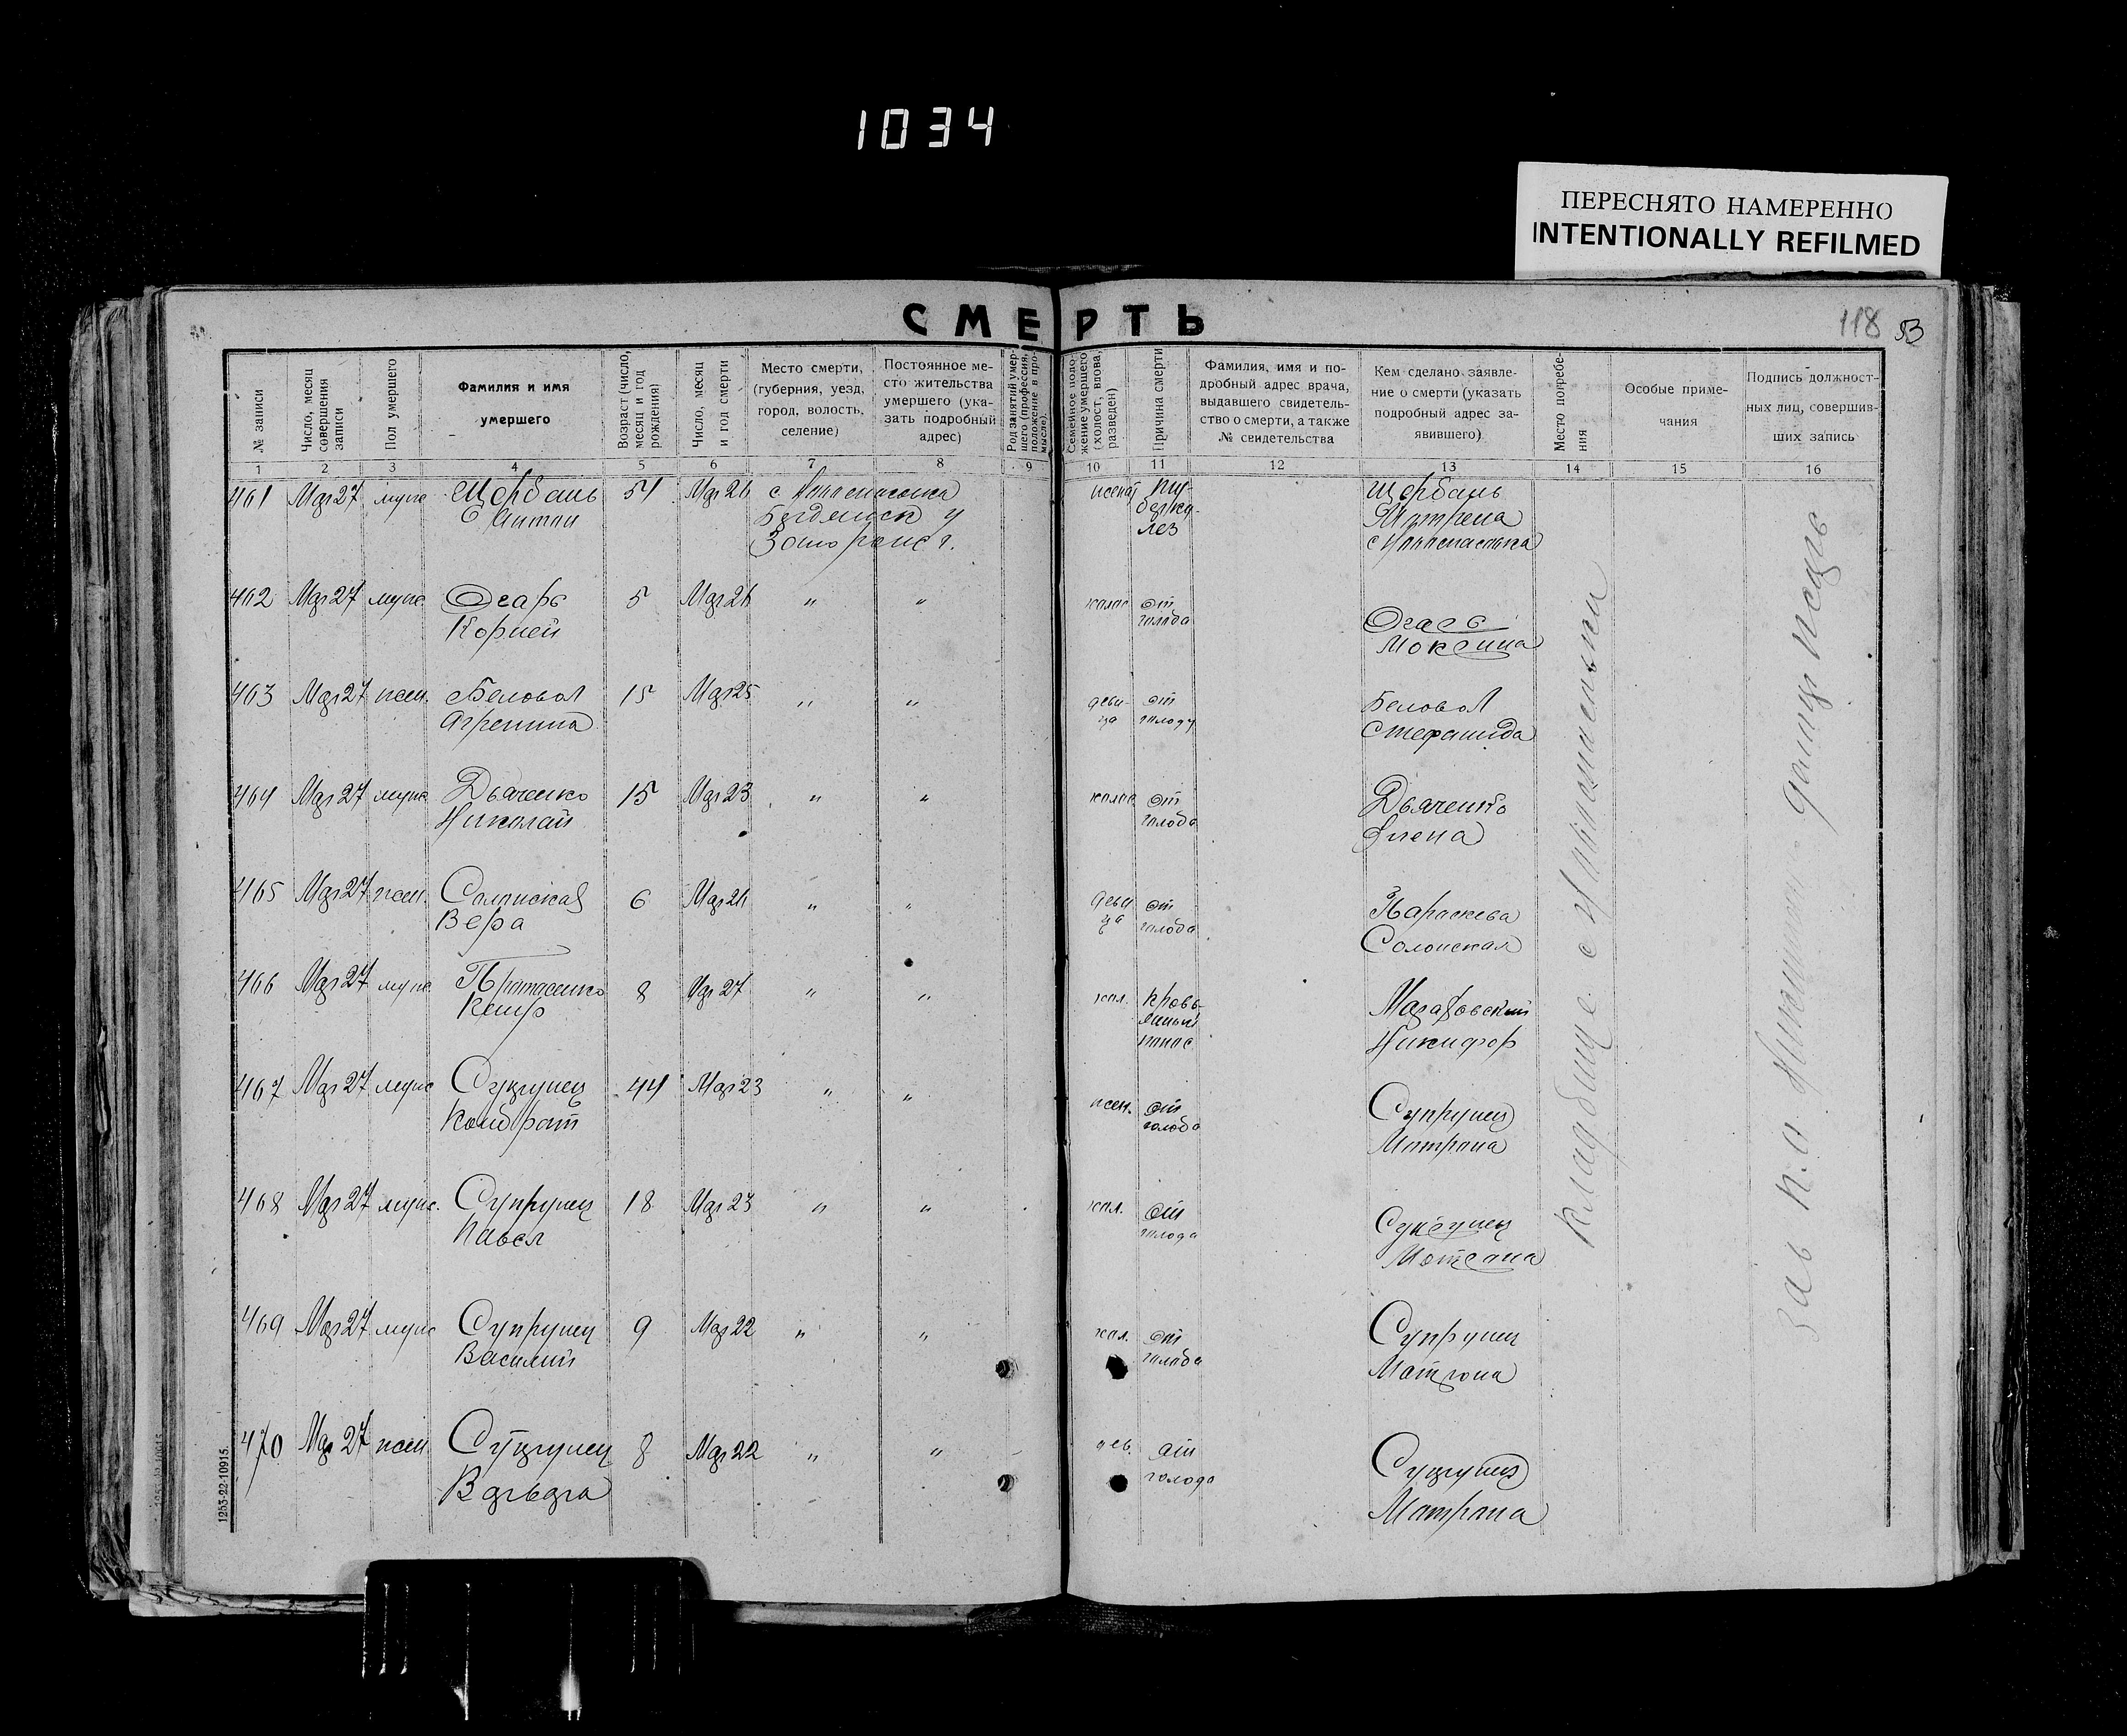 1034
ПЕРЕСНЯТО НАМЕРЕННО
INTENTIONALLY REFILMED
СМЕРТЬ
118 53
№ записи
Число, месяц совершения записи
Пол умершего
Фамилия и имя умершего
Возраст (число, месяц и год рождения)
Число, месяц и год смерти
Место смерти, (губерния, уезд, город, волость, селение)
Постоянное место жительства умершего (указать подробный адрес)
Род занятий умершего (профессия, положение в промысле).
Семейное положение умершего (холост, вдова, разведен)
Причина смерти
Фамилия, имя и подробный адрес врача, выдавшего свидетельство о смерти, а также № свидетельства
Кем сделано заявление о смерти (указать подробный адрес заявившего)
Место погребения
Особые примечания
Подпись должностных лиц, совершивших запись
1 2 3 4 5 6 7 8 9 10 11 12 13 14 15 16
461 Мая 27 муж Щербань 54 Мая 26 с.
Антон
Щербань
462 Мая 27 муж Огарь 5 Мая 26 " " холос от
Корней голода
463 Мая 27 жен. Беловол 15 Мая 25 " " деви- от Беловол
Агрепина ца голоду Стефанида
464 Мая 27 муж Дьяченко 15 Мая 23 " " холос от Дьяченко
Николай голода Елена
465 Мая 27 жен. 6 Мая 26 " " деви от Параскева
Вера ца голода Солонская
466 Мая 27 муж 8 Мая 27 " " хол.
Никифор
467 Мая 27 муж Супрунец 44 Мая 23 " " жен. от Супрунец
Кондрат голода Матрона
468 Мая 27 муж. Супрунец 18 Мая 23 " " хол. от Супрунец
Павел голода Матрона
469 Мая 27 муж Супрунец 9 Мая 22 " " хол. от Супрунец
Василий голода Матрона
470 Мая 27 жен Супрунец 8 Мая 22 " " дев. от Супрунец
Варвара голода Матрона
Кладбище с.
Зав
1253-22-10915.